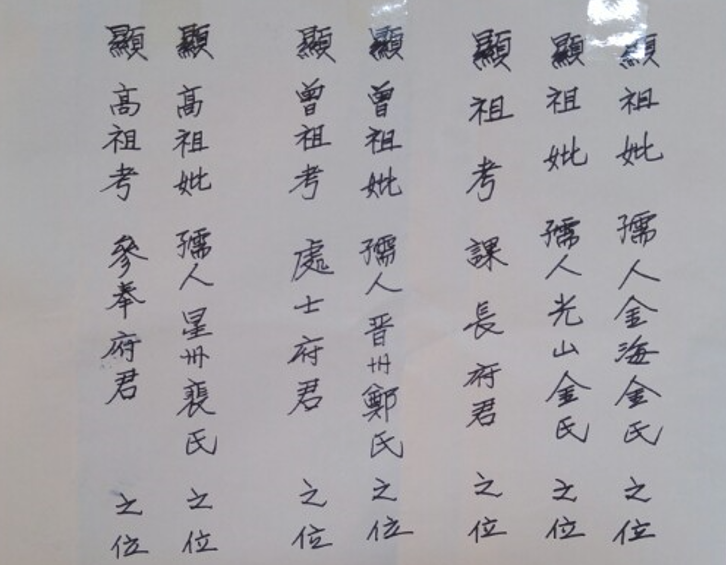 顯祖妣孺人金海金氏之位
顯祖妣孺人光山金氏之位
顯祖考課長府君之位
顯曾祖妣孺人晋州鄭氏之位
顯曾祖考處士府君之位
顯高祖妣孺人星州裵氏之位
顯高祖考參奉府君之位